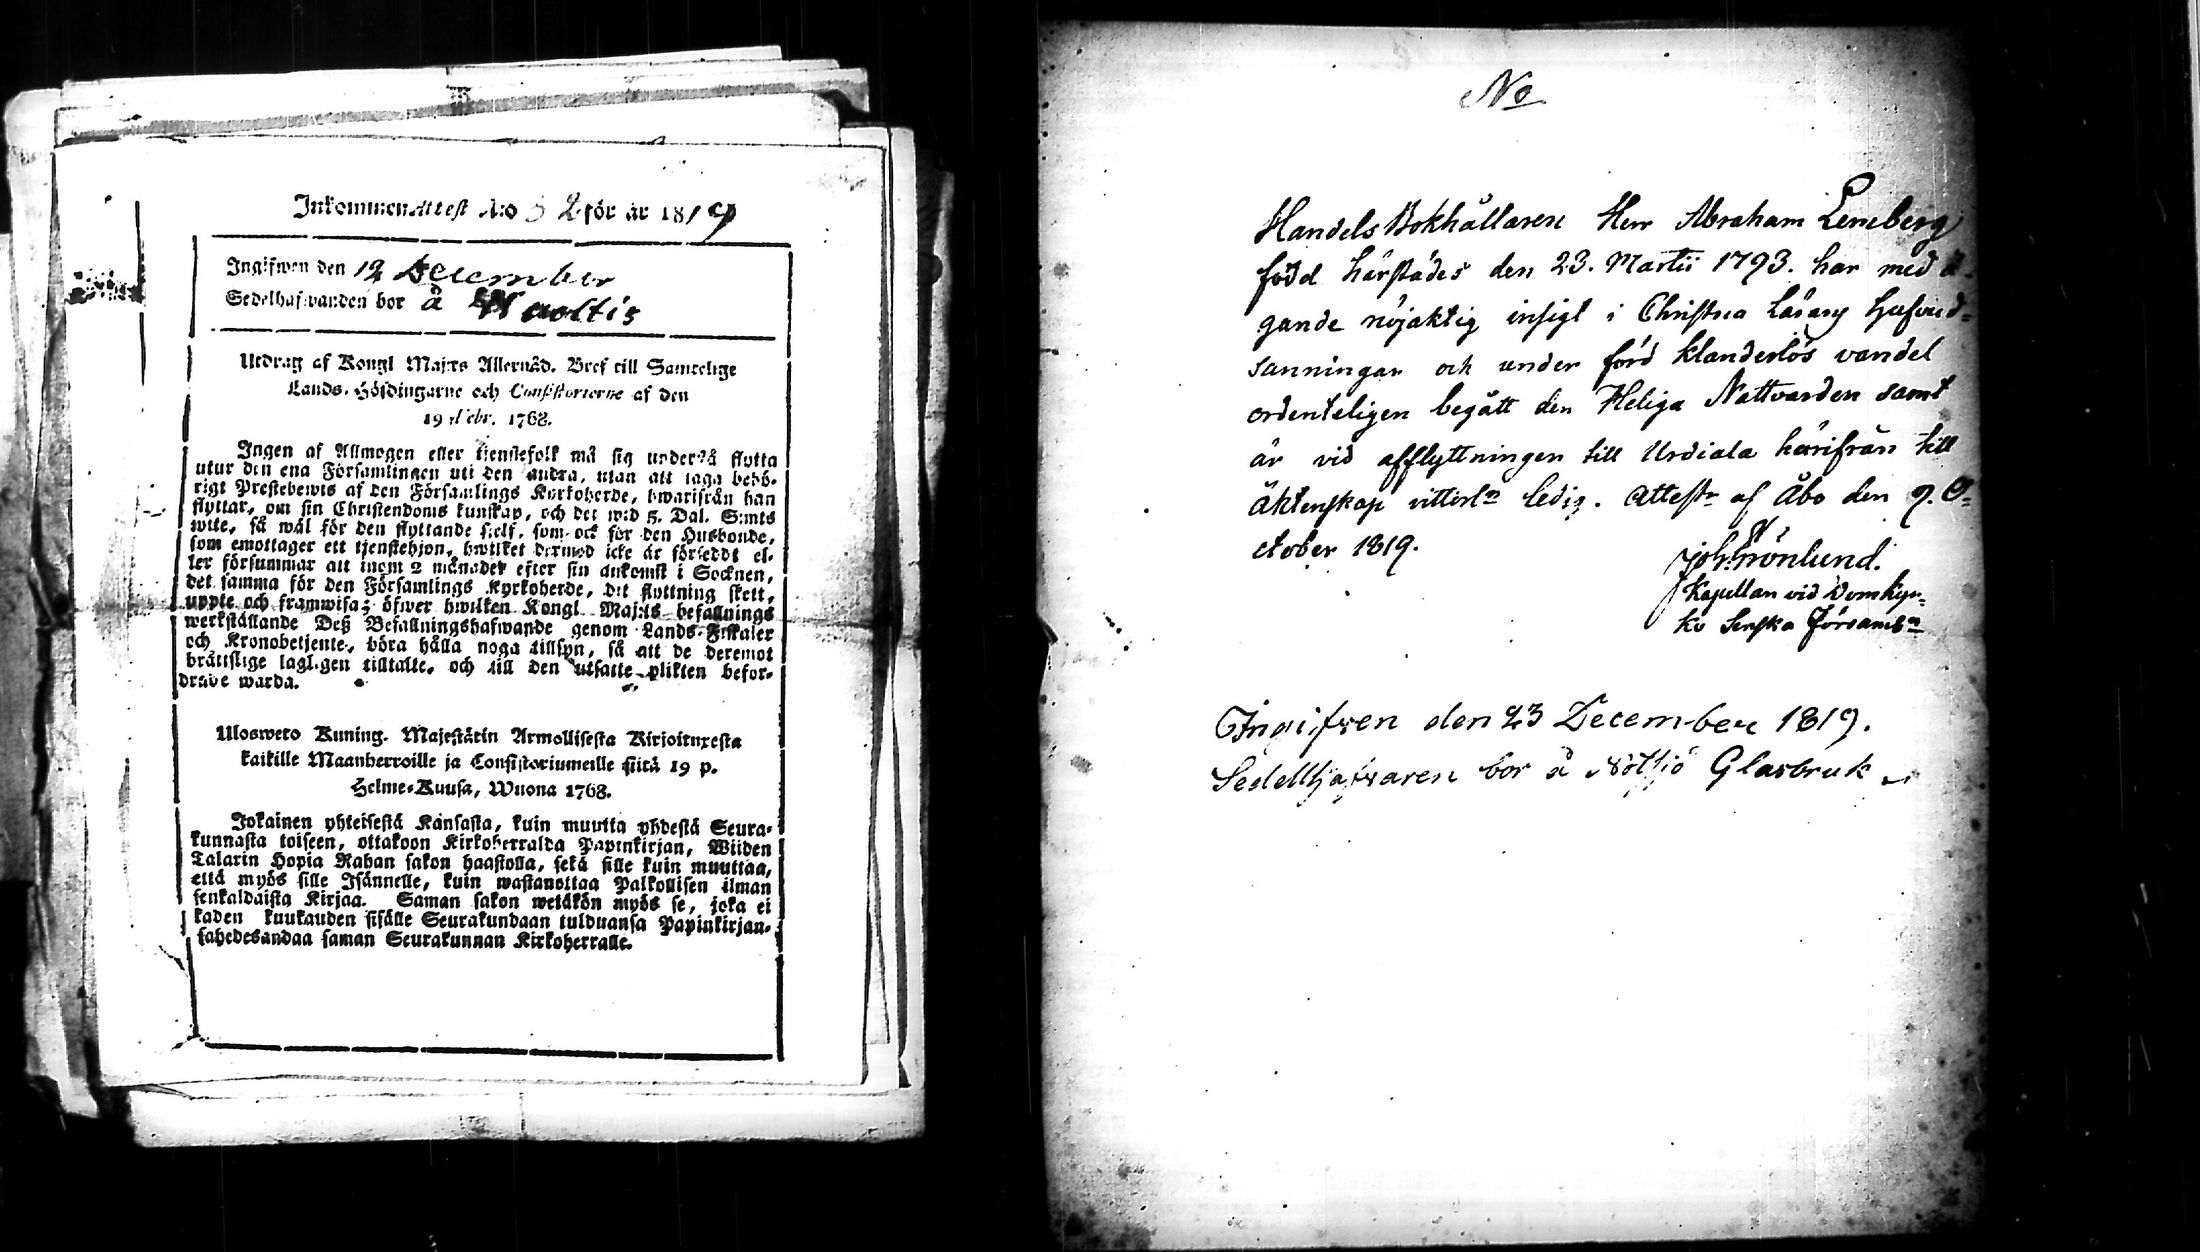 Inkommen Attest N:o 52 för år 1819
Ingifwen den 12 December
Sedelhafwanden bor å Waoltis
Utdrag af Kongl Maj:ts Allernåd. Bref till Samtelige
Lands-Höfdingarne och Consistorierne af den
19 Febr. 1768.
Ingen af Allmogen eller tjenstefolk må sig understå flytta
utur den ena Församlingen uti den andra, utan att taga behö-
rigt Prestebewis af den Församlings Kyrkoherde, hwarifrån han
flyttar, om sin Christendoms kunskap, och det wid 5. Dal. S:mts
wite, så wäl för den flyttande sjelf, som ock för den Husbonde,
som emottager ett tjenstehjon, hwilket dermed icke är försedt el-
ler försummar att inom 2 månader efter sin ankomst i Socknen,
det samma för den Församlings Kyrkoherde, dit flyttning skett,
uppte och framwisa; öfwer hwilken Kongl. Maj:ts befallnings
werkställande Deß Befallningshafwande genom Lands-Fiskaler
och Kronobetjente, böra hålla noga tillsyn, så att de deremot
bråttslige lagligen tilltalte, och till den utsatte plikten befor-
drade warda.
Ulosweto Kuning. Majestätin Armollisesta Kirjoituxesta
kaikille Maanherroille ja Consistoriumeille siitä 19 p.
Helme-Kuusa, Wuona 1768.
Jokainen yhteisestä Kansasta, kuin muutta yhdestä Seura-
kunnasta toiseen, ottakoon Kirkoherralda Papinkirjan, Wiiden
Talarin Hopia Rahan sakon haastolla, sekä sille kuin muuttaa,
että myös sille Isännelle, kuin wastanottaa Palkollisen ilman
senkaldaista Kirjaa. Saman sakon wetäkön myös se, joka ei
kaden kuukauden sisälle Seurakundaan tulduansa Papinkirjan-
sahedesandaa saman Seurakunnan Kirkoherralle.
No
Handels Bokhållaren Herr Abraham Lemberg
född härstädes den 23. Martii 1793. har med ä-
gande nöjaktig insigt i Christna Lärans hufvud-
sanningar och under förd klanderlös vandel
ordenteligen begått den Heliga Nattvarden samt
är vid afflyttningen till Urdiala härifrån till
äktenskap vitterl:n ledig. Attest:r af Åbo den 9. O-
ctober 1819.
Joh. Grönlund.
Kapellan vid Domkyr-
ko Svenska Församl:n
Ingifven den 23 December 1819.
Sedellhafvaren bor å Nötsjö Glasbruk